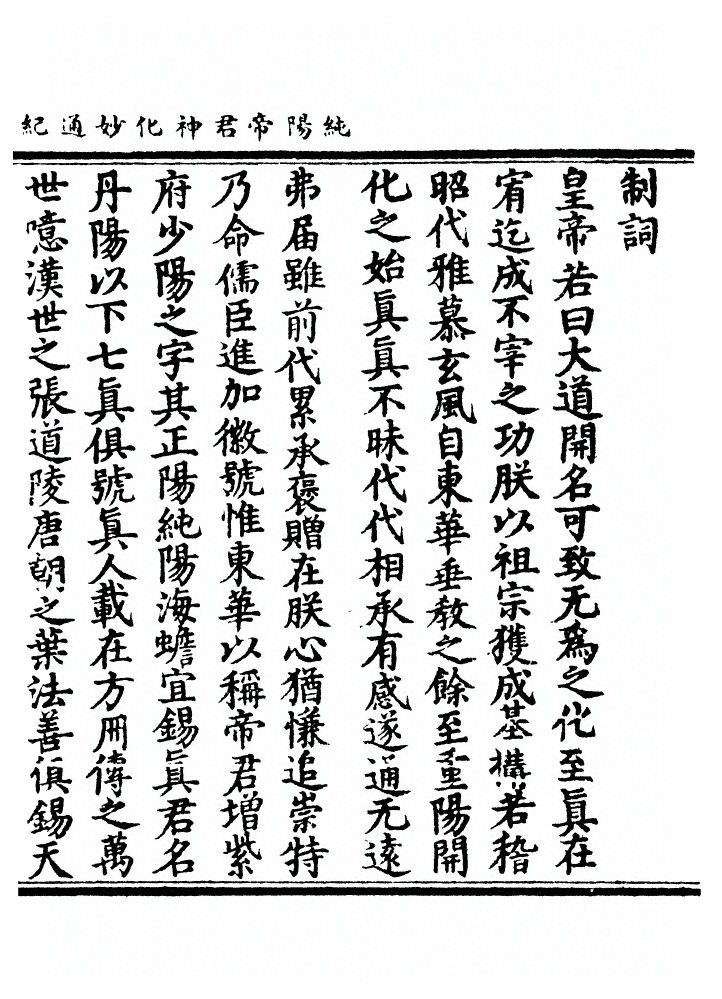 純陽帝君神化妙通紀
制詞
皇帝若曰大道開名可致无爲之化至眞在
宥迄成不宰之功朕以祖宗獲成基構若稽
昭代雅慕玄風自東華垂教之餘至重陽開
化之始眞眞不昧代代相承有感遂通无遠
弗届雖前代累承褒贈在朕心猶慊追崇特
乃命儒臣進加徽號惟東華以稱帝君增紫
府少陽之字其正陽純陽海蟾宜錫眞君名
丹陽以下七眞俱號眞人載在方冊傳之萬
世噫漢世之張道陵唐朝之葉法善俱錫天